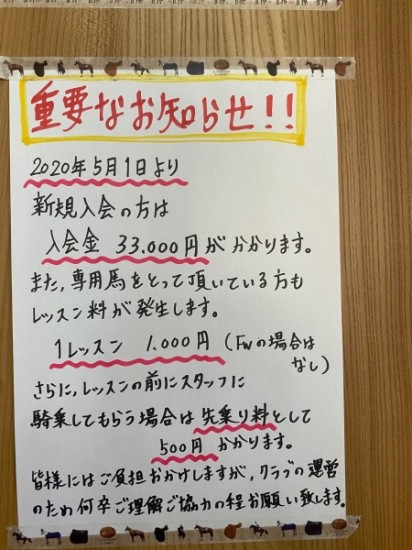 重要なお知らせ!!
2020年5月1日より
新規入会の方は
入会金 33.000円がかかります。
また,専用馬をとって頂いている方も
レッスン料が発生します。
1レッスン 1.000円 (FWの場合は
なし)
さらに,レッスンの前にスタッフに
騎乗してもらう場合は先乗り料として
500円 かかります。
皆様にはご負担おかけしますが,クラブの運営
のため何卒ご理解ご協力の程お願い致します。